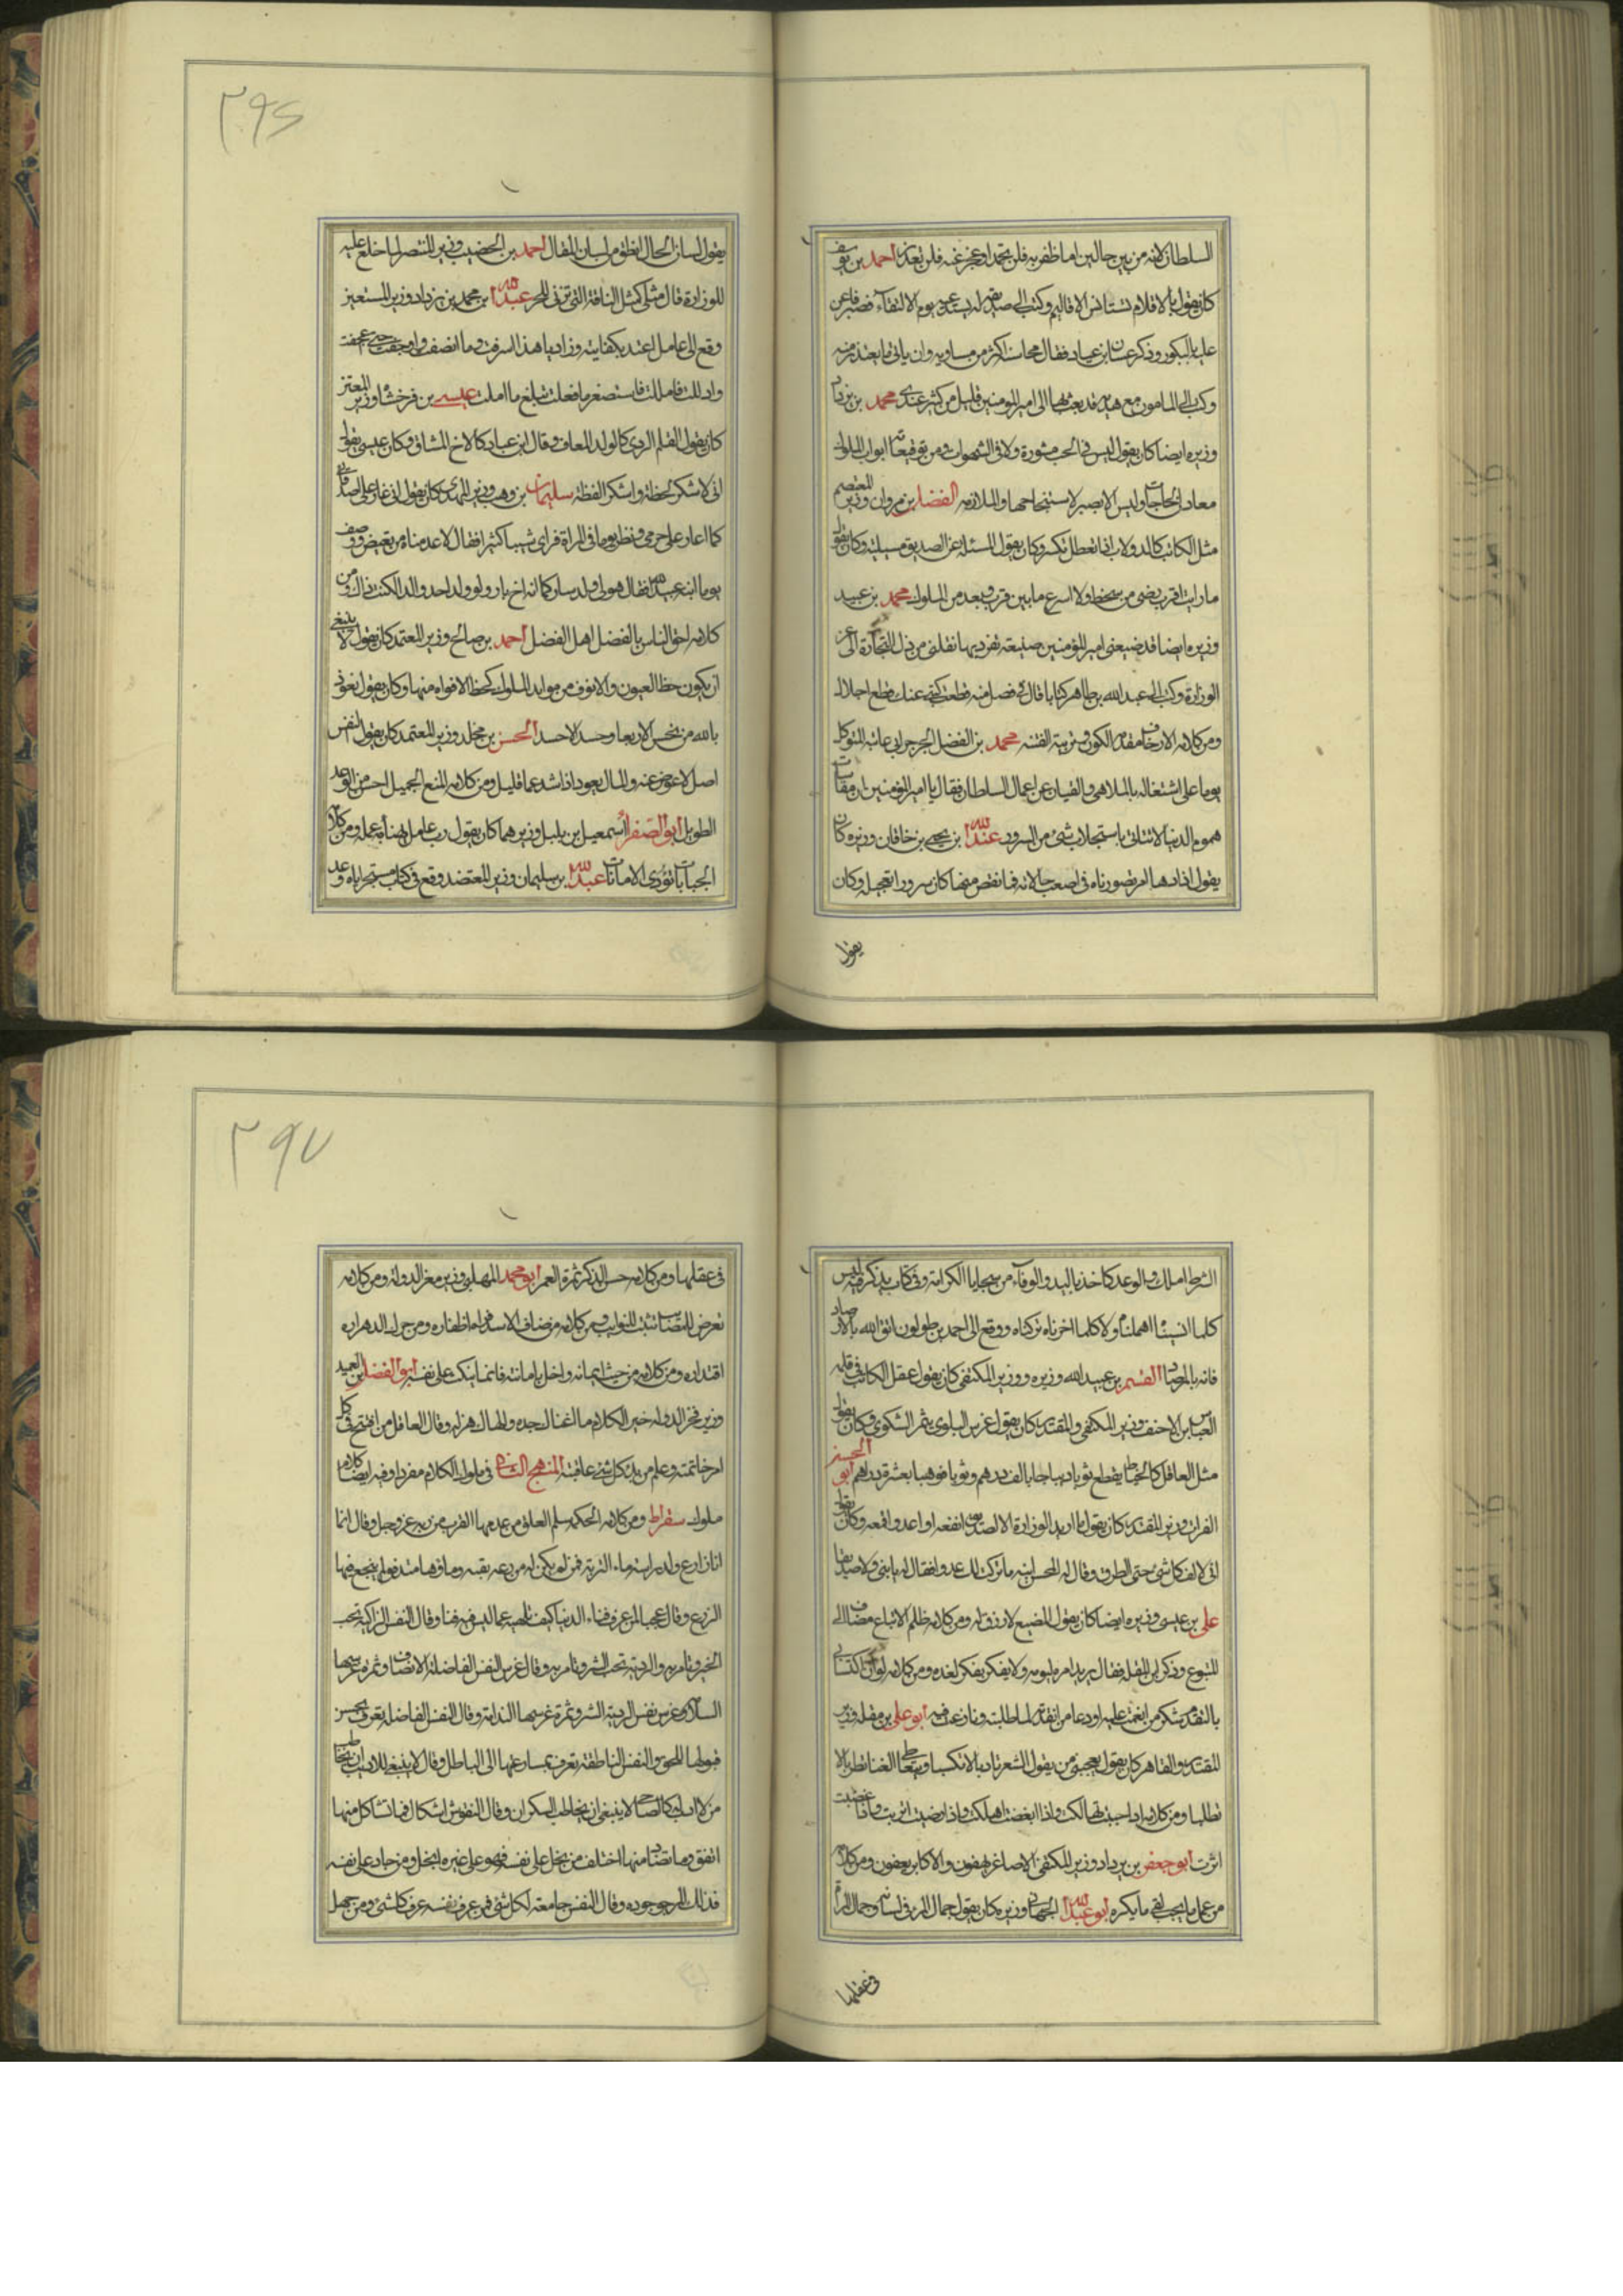 السلطان لانه من بين حالين اما ظفر به فلن يحمد او عجز عنه فلن يعذر احمد بن يوسف
كان يقول بالاقلام تستانس الاقاليم وكتب الى صديق له يستدعيه يوم الالتقاء فصبر فاعن
علينا بالبكور وذكر غسان بن عباد فقال محاسنه اكثر من مساويه وان ياتي ما يعتذر منه
وكتب الى المامون مع هدية قد بعثت بها الى امير المومنين قليل من كثير عندي محمد بن يزداد
وزيره ايضا كان يقول ليس في الحب مشورة ولا في الشهوات ومن توقيعاته ابواب الملوك
معادن الحاجات وليس الا بصبر لاستنجاحها والملازمه الفضل بن مروان وزير المعتصم
مثل الكاتب كالدولاب اذا تعطل تكسر وكان يقول المسئلة عن الصديق وكان يقول
ما رايت اقرب رضى من سخط ولا اسرع ما بين قرب وبعد من الملوك محمد بن عبيد
وزيره ايضا قد ضيعني امير المؤمنين صنيعة تفرد بها نقلني من ذل التجارة الى عز
الوزارة وكتب الى عبد الله بن طاهر كتابا قال في فصل منه قطعت كتبي عنك قطع اجلال
ومن كلامه الارجاف مقدمة الكون وتربية الفتنة محمد بن الفضل الجرجراي عاتبه المتوكل
يوما على اشتغاله بالملاهي والقيان عن اعمال السلطان فقال يا امير المؤمنين ان مقاسات
هموم الدنيا لا تتاتى الا باستجلاب شئ من السرور عبد الله بن يحيى بن خاقان وزيره كان
يقول اذا دهانا امر تصورناه في اصعب حالاته فما نقص منها كان سرورا نتعجله وكان
يقول
٣٩٦
يقول لسان الحال انطق من لسان المقال احمد بن الخصيب وزير المنتصر لما خلع عليه
للوزارة قال مثلي كمثل الناقة التي تزين للنحر عبد الله بن محمد بن يزداد وزير المستعين
وقع الى عامل اعتد بكفايته وزاد يا هذا اسرفت وما انصفت واوجفت حتى عجفت
وادللت فامللت فاستصغر ما فعلت تبلغ ما املت عيسى بن فرخشاه وزير المعتز
كان يقول القلم الردى كالولد العاق وقال ابن عباد كالاخ المشاق وكان عيسى يقول
انى لاشكر اللحظة واشكر اللفظة سليمان بن وهب وزير المهتدي كان يقول انى اغار على اصدقائي
كما اغار على حرمي ونظر يوما في المراة فراى شيبا كثيرا فقال لا عدمناه من بغيض ووصف
يوما ابنه عبيد الله فقال هو لى ولد سار كما انه اخ بار ولو ولد احد والدا لكنت ذاك ومن
كلامه احق الناس بالفضل اهل الفضل احمد بن صالح وزير المعتمد كان يقول لا ينبغي
ان يكون حظ العيون والانوف من موايد الملوك كحظ الافواه منها وكان يقول نعوذ
بالله من نحس الاربعا وحسد الاحسد الحسن بن مخلد وزير المعتمد كان يقول النفس
اصل لا عوض عنه والمال يعود اذا شد عما قليل ومن كلامه المنع الجميل احسن من الوعد
الطويل ابو الصقر اسمعيل بن بلبل وزيرهما كان يقول رب عامل اهنأ به عمله ومن كلامه
الجبايات تؤدى الامانات عبد الله بن سليمان وزير المعتضد وقع في كتاب مستنجز اياه وعد
الشرط املك والوعد كاخذ باليد والوفاء من سجايا الكرام وفي كتاب يذكر فيه ليس
كلما انسيناه اهملناه ولا كلما اخرناه تركناه ووقع الى احمد بن طولون اتق الله بالارصاد
فانه بالمرصاد القسم بن عبيد الله وزيره ووزير المكتفى كان يقول عقل الكاتب في قلمه
العباس بن الاحنف وزير المكتفي والمقتدر كان يقول غرس البلوى يثمر الشكوى وكان يقول
مثل العاقل كالخياط يقطع ثوبا ديباجا بالف درهم وثوبا قوهيا بعشرة دراهم ابو الحسن
الفرات وزير المقتدر كان يقول ما اريد الوزارة الا لصديق انفعه او عدو اقمعه وكان يقول
انى لالف كل شئ حتى الطرق وقال له المحسن ابنه ما تركت لك عدوا فقال له يا بنى ولا صديقا
على بن عيسى وزيره ايضا كان يقول المضيع لا رزق له ومن كلامه ظلم الاتباع مضاف الى
المتبوع وذكر ابن المقلة فقال يريد امر ليومه ولا يفكر لغده ومن كلامه
بالتقدم شكر من انعمت عليه ابو على بن مقلة وزير
المقتدر والقاهر كان يقول يعجبني من يقول الشعر تادبا لا تكسبا ويتعاطى الغنا تطربا لا
تطلبا ومن كلامه اذا احببت تهالكت واذا ابغضت اهلكت واذا رضيت اثرت واذا غضبت
اثرت ابو جعفر بن يزداد وزير المكتفي الاصاغر يهفون والاكابر يعفون ومن كلامه
من عمل ما يحب لقى ما يكره ابو عبد الله الجيهاني وزير كان يقول جمال المرء في لسانه وجمال المراة
في عقلها
٣٩٧
في عقلها ومن كلامه حسن الذكر ثمرة العمر ابو محمد المهلبي وزير معز الدولة ومن كلامه
اقتداره ومن كلامه من حنث ايمانه واخل بامانته فانما ينكث على نفسه ابو الفضل بن العميد
وزير فخر الدولة خير الكلام ما اغناك جده والهاك هزله وقال العاقل من افتتح في كل
امر خاتمته وعلم من بدء كل شئ عاقبته المنهج الثامن في ملوك الكلام مفردا وفيه ايضا كلام
ملوك سقراط ومن كلامه الحكمة سلم العلو من عدمها القرب من ربه عز وجل وقال انما
الزرع وقال عجبا لمن عرف فناء الدنيا كيف تلهيه عما ليس فيه فنا وقال النفس الزاكية تحب
الخير وتامر به والردية تحب الشر وتامر به وقال غرس النفس الفاضلة الانصاف وثمرة غرسها
السلامة وغرس نفس الردية الشر وثمرة غرسها الندامة وقال النفس الفاضلة يعرف بحسن
قبولها للحق والنفس الناطقة تعرف بمسارعتها الى الباطل وقال لا ينبغي للاديب ان يخاطب
من لا ادب له كالصاحي لا ينبغي ان يخاطب السكران وقال النفوس اشكال فما تشاكل منها
اتفق وما تضاد منها اختلف من بخل على نفسه فهو على غيره ابخل ومن جاد على نفسه
فذلك المرجو جوده وقال النفس جامعة لكل شئ فمن عرف نفسه عرف كل شئ ومن جهل